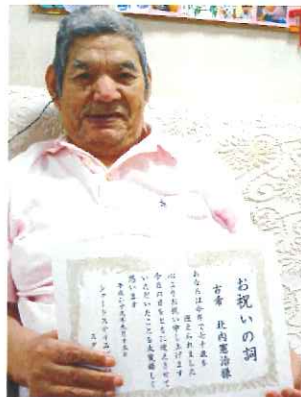 お祝いの詞
古希 北内憲治様
あなたは今年で七十歳を
迎えられました
心よりお祝い申し上げます
今日の日をともに迎えさせて
いただいたことを大変嬉しく
思います